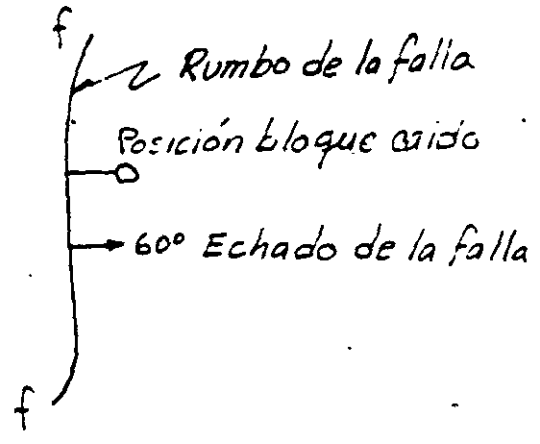 f
Rumbo de la falla
Posición bloque caido
60° Echado de la falla
f